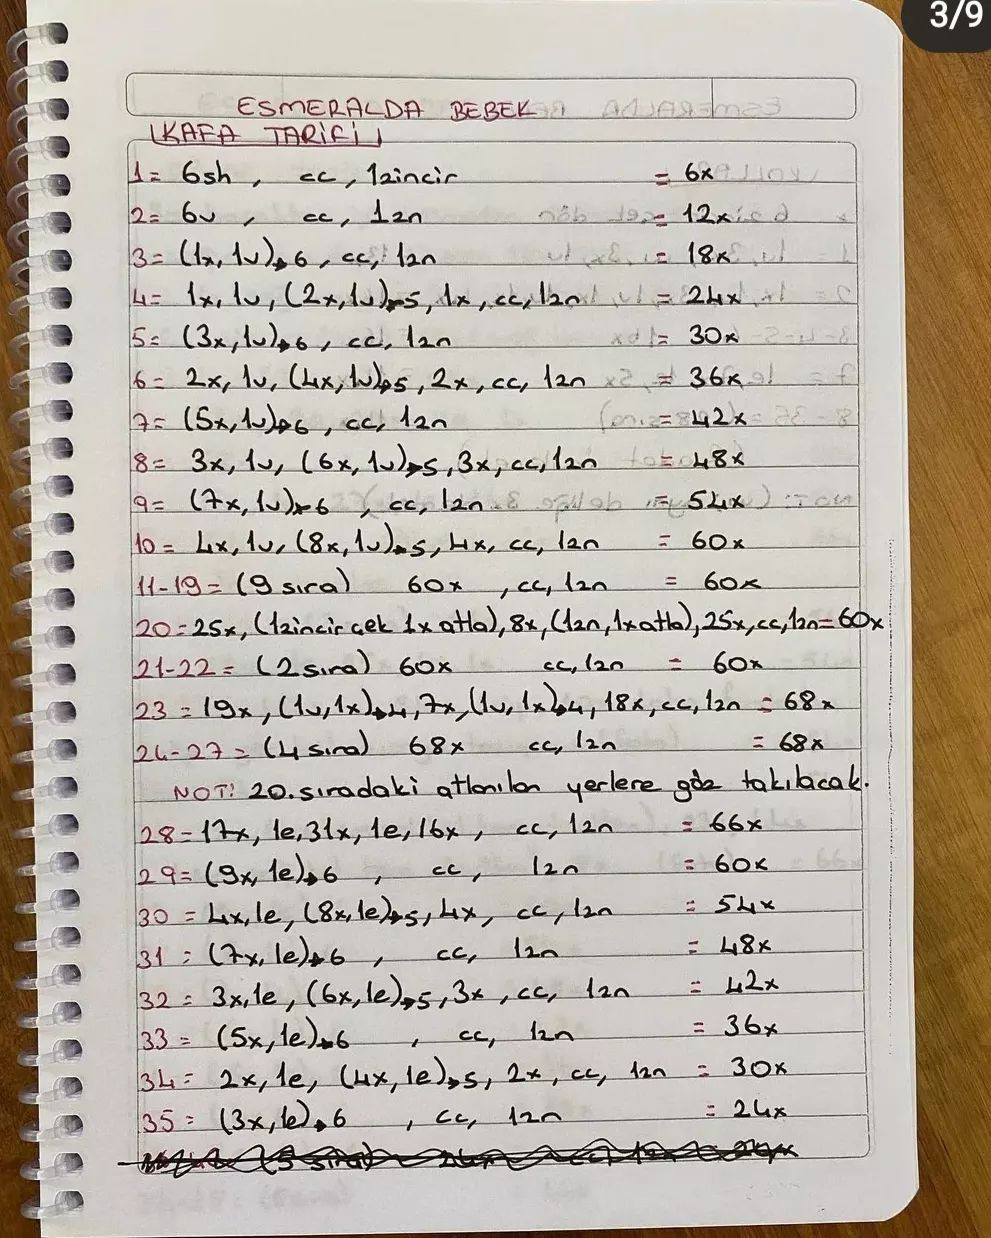 3/9
ESMERALDA BEBEK
KAFA TARİFİ
1= 6sh, cc, 1zincir = 6x
2= 6v, cc, 1zn = 12x
3= (1x, 1v)→6, cc, 1zn = 18x
4= 1x, 1v, (2x, 1v)→5, 1x, cc, 1zn = 24x
5= (3x, 1v)→6, cc, 1zn = 30x
6= 2x, 1v, (4x, 1v)→5, 2x, cc, 1zn = 36x
7= (5x, 1v)→6, cc, 1zn = 42x
8= 3x, 1v, (6x, 1v)→5, 3x, cc, 1zn = 48x
9= (7x, 1v)→6, cc, 1zn = 54x
10= 4x, 1v, (8x, 1v)→5, 4x, cc, 1zn = 60x
11-19= (9 sıra) 60x, cc, 1zn = 60x
20= 25x, (1zincir çek 1x atla), 8x, (1zn, 1x atla), 25x, cc, 1zn = 60x
21-22= (2 sıra) 60x cc, 1zn = 60x
23= 19x, (1v, 1x)→4, 7x, (1v, 1x)→4, 18x, cc, 1zn = 68x
24-27= (4 sıra) 68x cc, 1zn = 68x
NOT! 20. sıradaki atlanılan yerlere göz takılacak.
28= 17x, 1e, 31x, 1e, 16x, cc, 1zn = 66x
29= (9x, 1e)→6, cc, 1zn = 60x
30= 4x, 1e, (8x, 1e)→5, 4x, cc, 1zn = 54x
31= (7x, 1e)→6, cc, 1zn = 48x
32= 3x, 1e, (6x, 1e)→5, 3x, cc, 1zn = 42x
33= (5x, 1e)→6, cc, 1zn = 36x
34= 2x, 1e, (4x, 1e)→5, 2x, cc, 1zn = 30x
35= (3x, 1e)→6, cc, 1zn = 24x